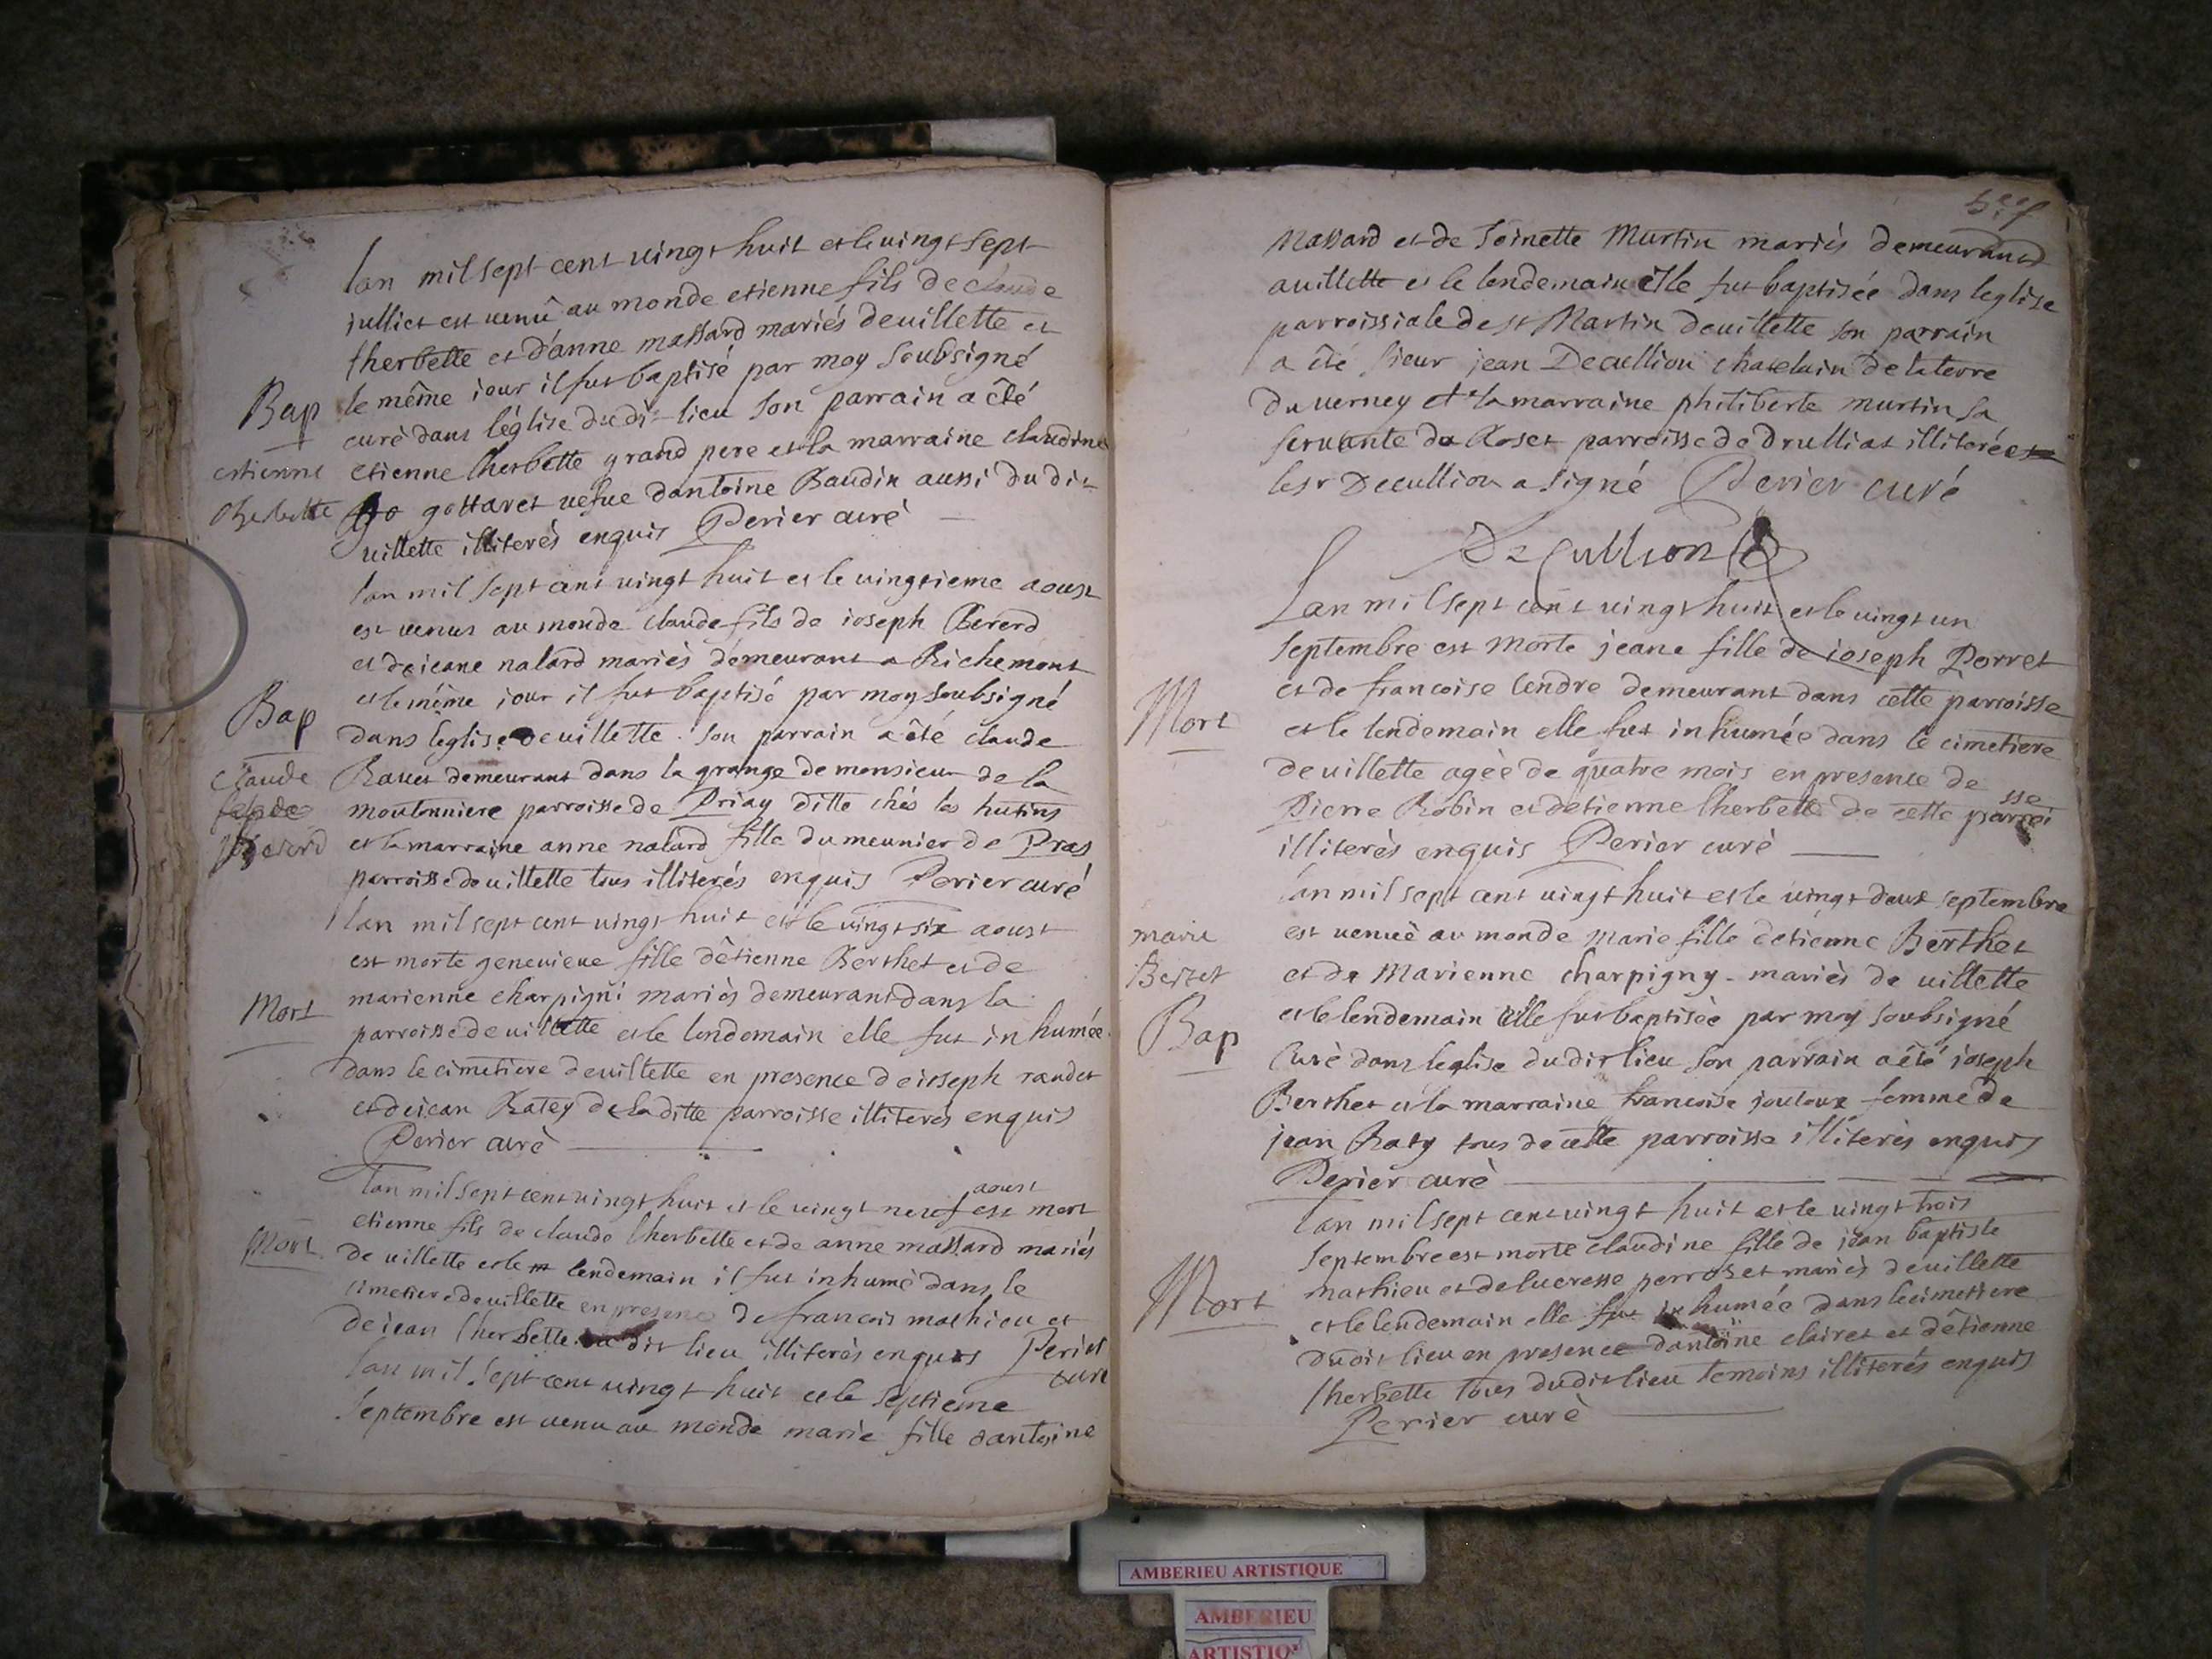 lan mil sept cent vingt huit et le vingt sept
julliet est venû au monde etienne fils de claude
lherbette et d'anne massard mariés de villette et
le même iour il fut baptisé par moy soubsigné
Bap
curé dans l'église du dit lieu son parrain a êté
estienne
etienne lherbette grand pere et la marraine claudine
lherbette
gottaret vefue dantoine Baudin aussi du dit
villette illiterés enquis Perier curè
lan mil sept cent vingt huit et le vingtieme aoust
est venus au monde claude fils de ioseph Bererd
et de ieane nalard mariès demeurant a Richemont
et le même iour il fut baptisé par moy soubsigné
Bap
dans leglise de villette. son parrain a êté claude
claude
demeurant dans la grange de monsieur de la
moutonniere parroisse de Priay ditte chés les hutins
et la marraine anne nalard fille du meunier de Pras
parroisse de villette tous illiterés enquis Perier curé
lan mil sept cent vingt huit et le vingt six aoust
est morte genevieve fille dêtienne Berthet et de
Mort
marienne charpigni mariès demeurant dans la
parroisse de villette et le lendemain elle fut inhumée
dans le cimetiere de villette en presence de ioseph raudet
et de iean Ratey de la ditte parroisse illiterés enquis
Perier curè
lan mil sept cent vingt huit et le vingt neuf aoust est mort
etienne fils de claude lherbette et de anne massard mariés
Mort
de villette et le lendemain il fut inhumè dans le
cimetiere de villette en presence de francois mathieu et
de iean lherbette du dit lieu illiterès enquis Perier
curè
lan mil sept cent vingt huit et le septieme
septembre est venu au monde marie fille dantoine
Massard et de Toinette Martin mariès demeurant
a villette et le lendemain elle fut baptisée dans leglise
parroissiale de st Martin de villette son parrain
a êté sieur jean Decullion chatelain de la terre
du verney et la marraine philiberte martin sa
servante du Roset parroisse de Drulliat illiterée
le sr Decullion a signé Perier curé
Decullion
Lan mil sept cent vingt huit et le vingt un
septembre est morte jeane fille de ioseph Porret
et de francoise lendre demeurant dans cette parroisse
Mort
et le lendemain elle fut inhumée dans le cimetiere
de villette agèe de quatre mois en presence de
Pierre Robin et detienne lherbette de cette parroisse
illiterès enquis Perier curè
lan mil sept cent vingt huit et le vingt deux septembre
marie
est venuè au monde Marie fille detienne Berthet
Bertet
et de Marienne charpigny mariès de villette
et le lendemain elle fut baptisèe par moy soubsigné
Bap
curè dans leglise du dit lieu son parrain a êté ioseph
Berthet et la marraine francoise joutoux femme de
jean Raty tous de cette parroisse illiterès enquis
Perier curè
lan mil sept cent vingt huit et le vingt trois
septembre est morte claudine fille de iean baptiste
mathieu et de lucresse perroset mariès de villette
Mort
et le lendemain elle fut inhumée dans le cimetiere
du dit lieu en presence dantoine clairet et dêtienne
lherbette tous du dit lieu temoins illiterés enquis
Perier curè
AMBERIEU ARTISTIQUE
AMBERIEU
ARTISTIQ